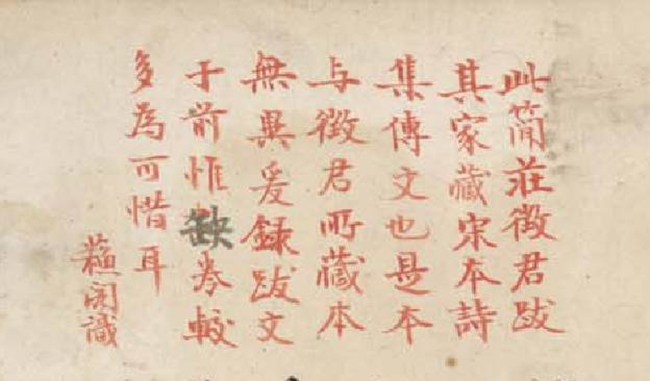 此简莊徵君跋
其家藏宋本詩
集傳文也是本
与徵君所藏本
無異爰録跋文
于前惟缺卷較
多為可惜耳
識